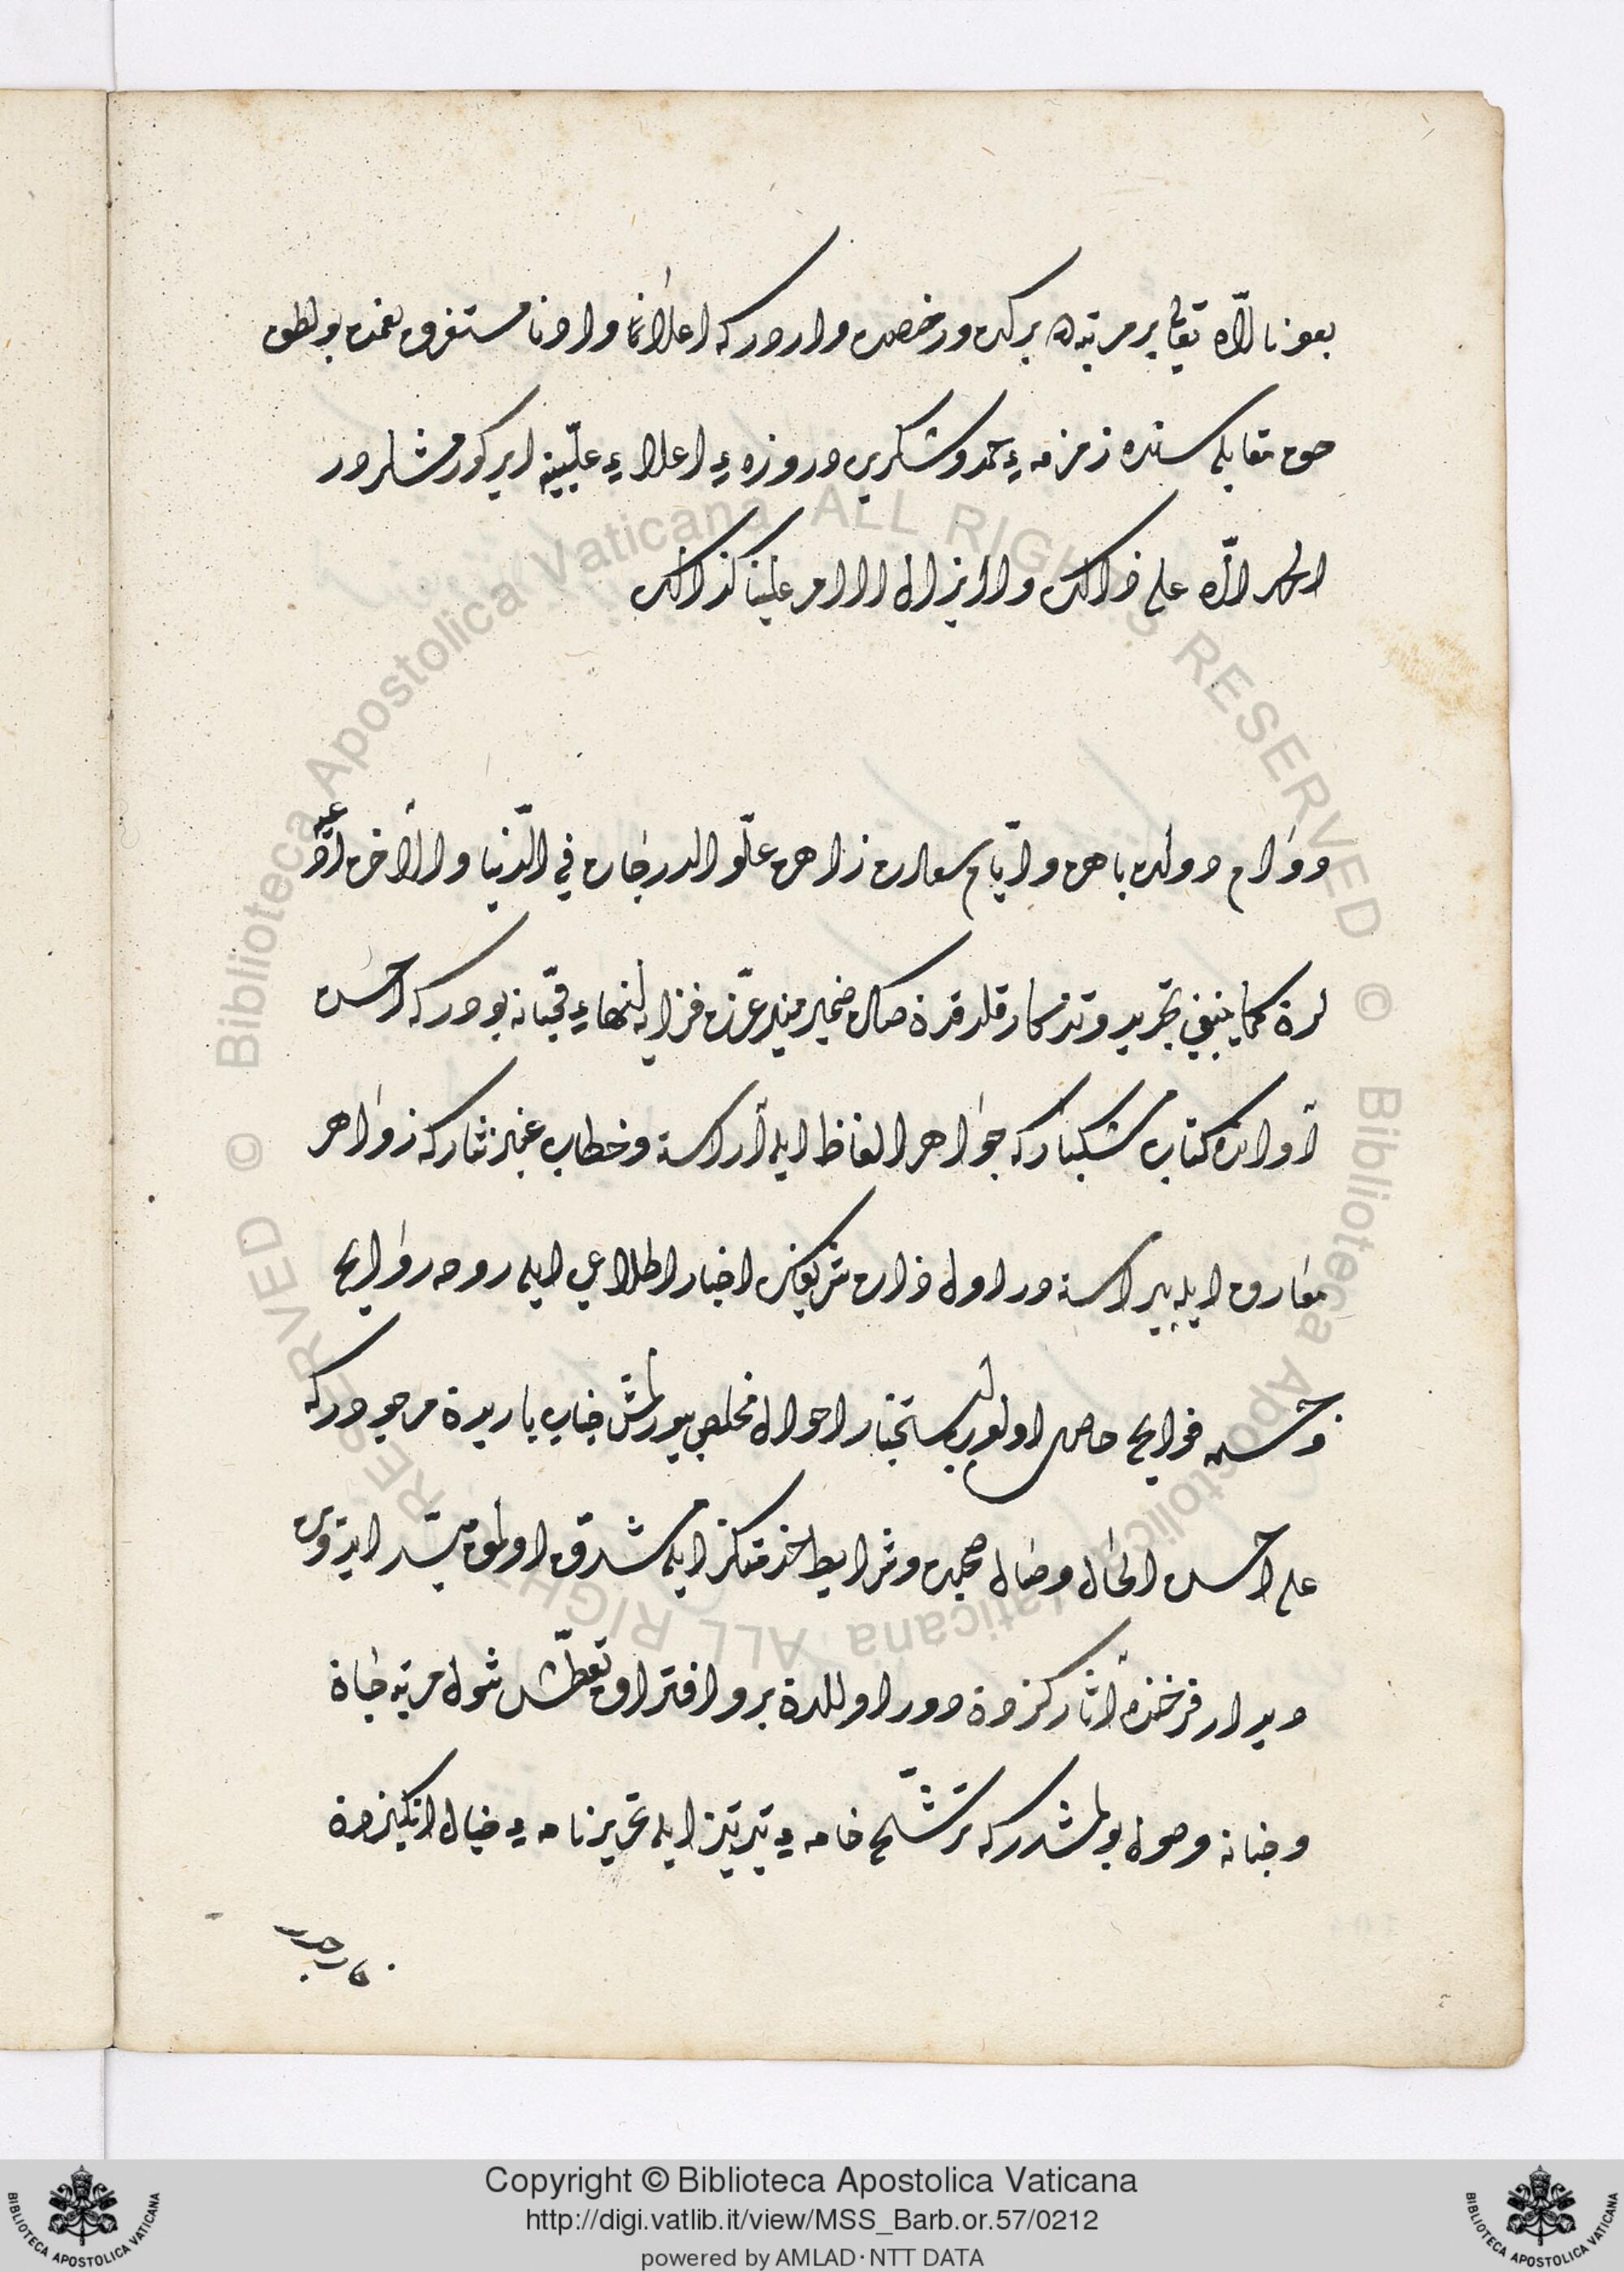 بعون الله تعالی بر مرتبه ده برکت ورخصت واردر که اعلانا وادنا مستغرق نعمت بولطف
حق مقابله سنده زمزمه ء حمد وشکری وروزه ء اعلاء علیینه ایرکورمشلردر
الحمد الله علی ذالک والا یزال الامر علینا کذالک
دوام دولت باهره وایام سعادت زاهره علو الدرجات فی الدنیا والاخره
لره کما ینبغی تجرید وتذکار قلندقده صکره ضمیر منیر عزت فزایه انهاء محبانه بودر که احسن
آوانده کتاب مشکبار که جواهر الفاظ ایله آراسته وخطاب عنبر نثار که زواهر
معارف ایله پیراسته در اول ذات شریفک اخبار اطلاعی ایله روحه روایح
وجسمه فوایح حاصل اولوب استخبار احوال مخلص بیورلمش جناب باریده مرجودر که
علی احسن الحال وصال صحبت وشرایط خدمتکز ایله مشرف اولمق میسر ایده
دیدار فرخنده آثارکزدن دور اوللدن برو افتراق تعطش شول مرتبه جانه
وجنانه وصول بولمشدر که ترشح خامه ء تیزتیز ایله تحریر نامه ء خیال انکیزدن
Copyright © Biblioteca Apostolica Vaticana
http://digi.vatlib.it/view/MSS_Barb.or.57/0212
powered by AMLAD·NTT DATA